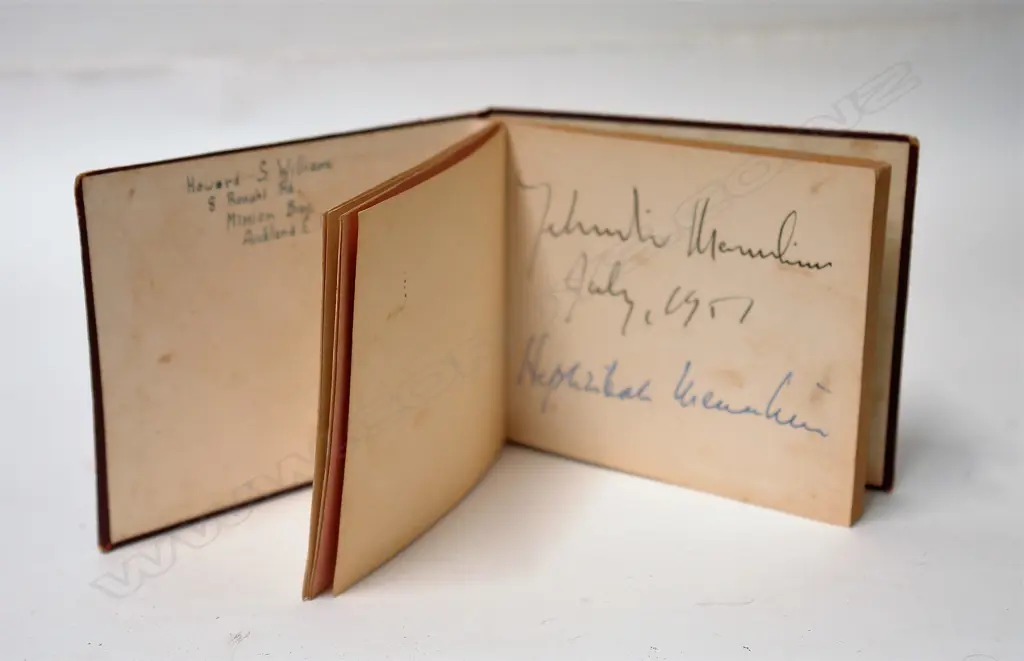 Howard S Williams
8 Ronaki Rd
Mission Bay
Auckland E.
Yehudi Menuhin
July, 1951
Hephzibah Menuhin